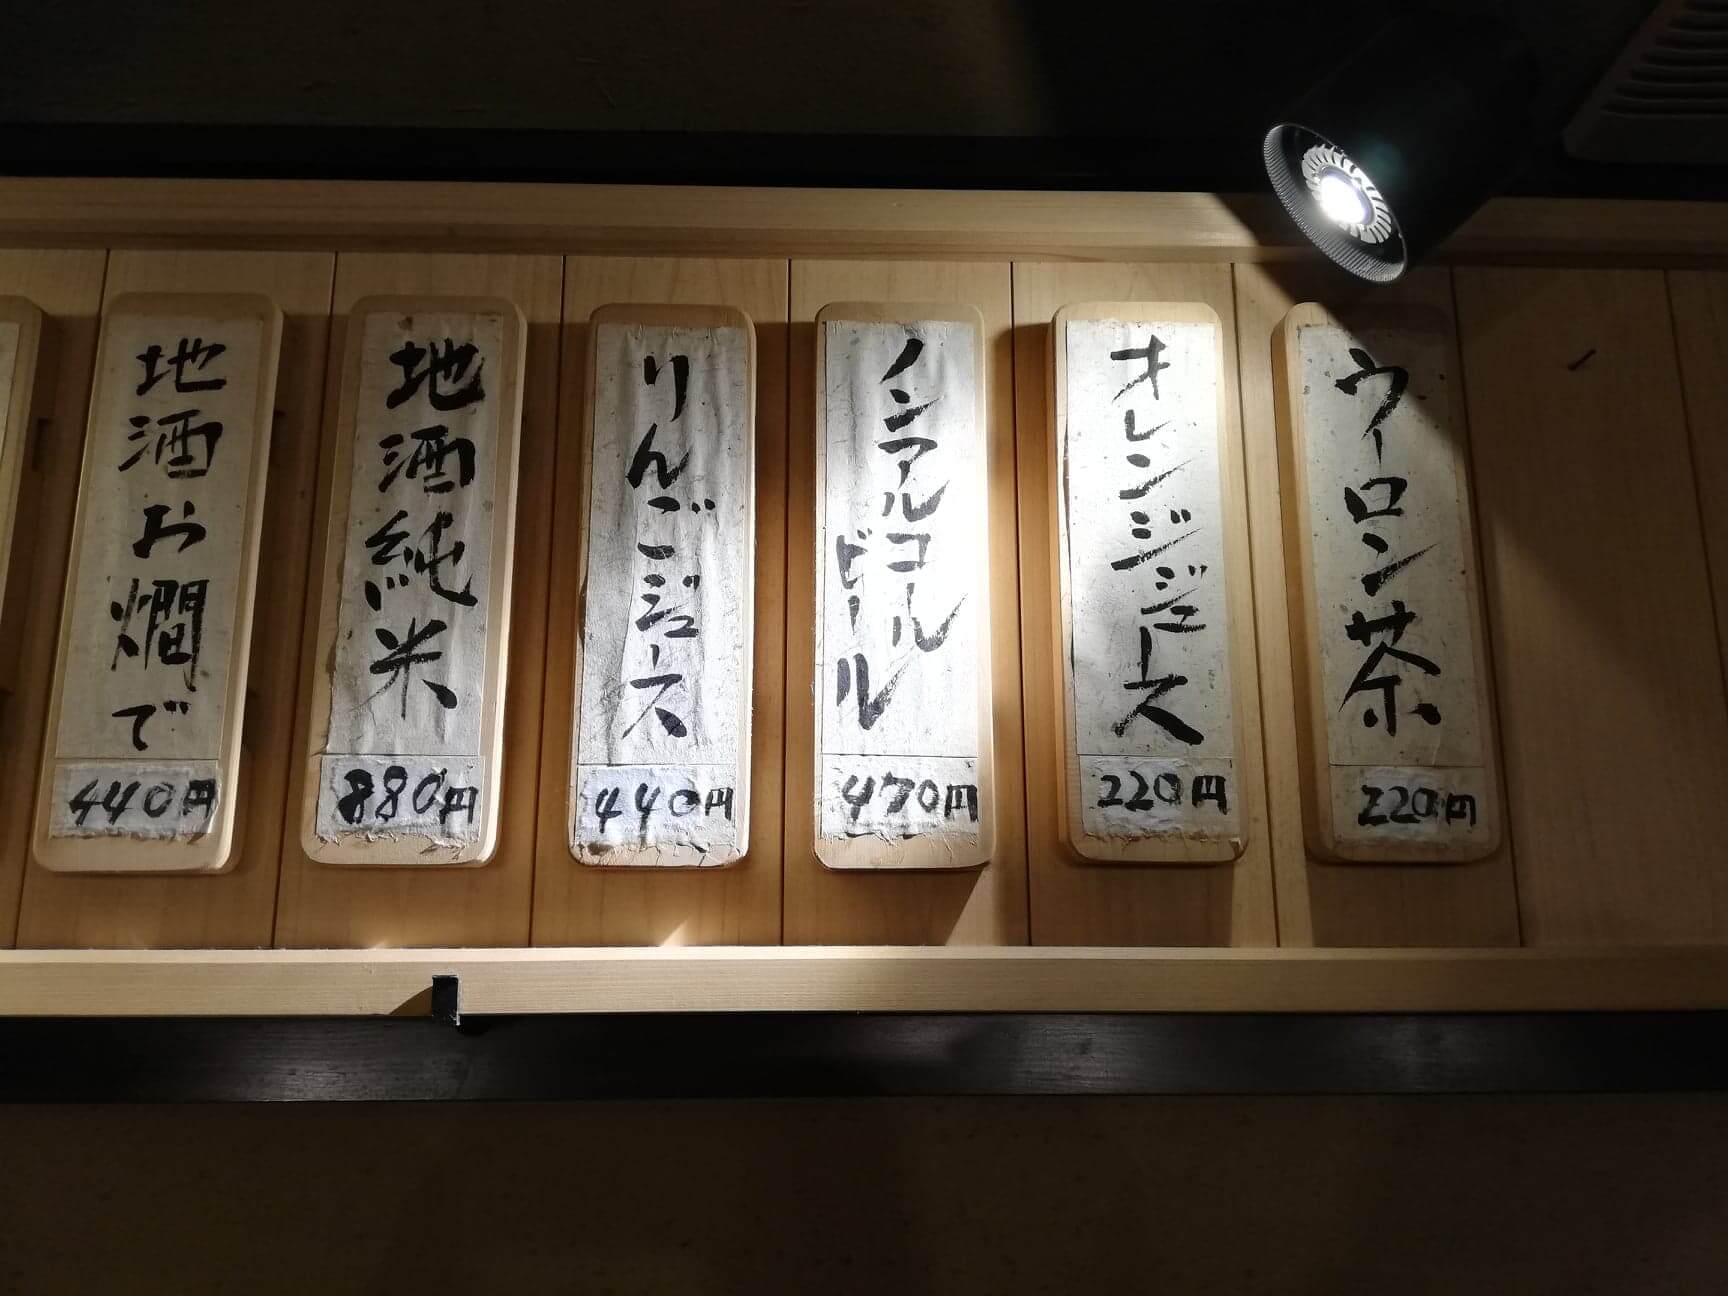 ウーロン茶
220円
オレンジジュース
220円
ノンアルコール
ビール
470円
りんごジュース
440円
地酒純米
880円
地酒お燗で
440円